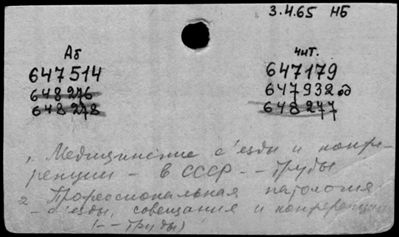 3.4.65 НБ
Аб чит.
647514 647179
648276 647932 об
648278 648277
1. Медицинские с'езды и конфе-
ренции - в СССР - - Труды
2 Профессиональная патология
- с'езды, совещания и конференции
(- - Труды)